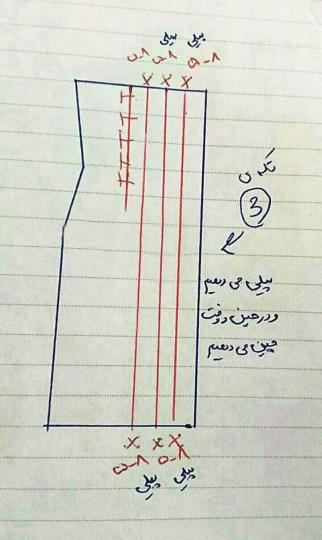 پیلی پیلی
۵-۸ ۵-۸ ۵-۸
تکه ی
3
پیلی می دهیم
و در حین دوخت
چین می دهیم
۵-۸ ۵-۸
پیلی پیلی